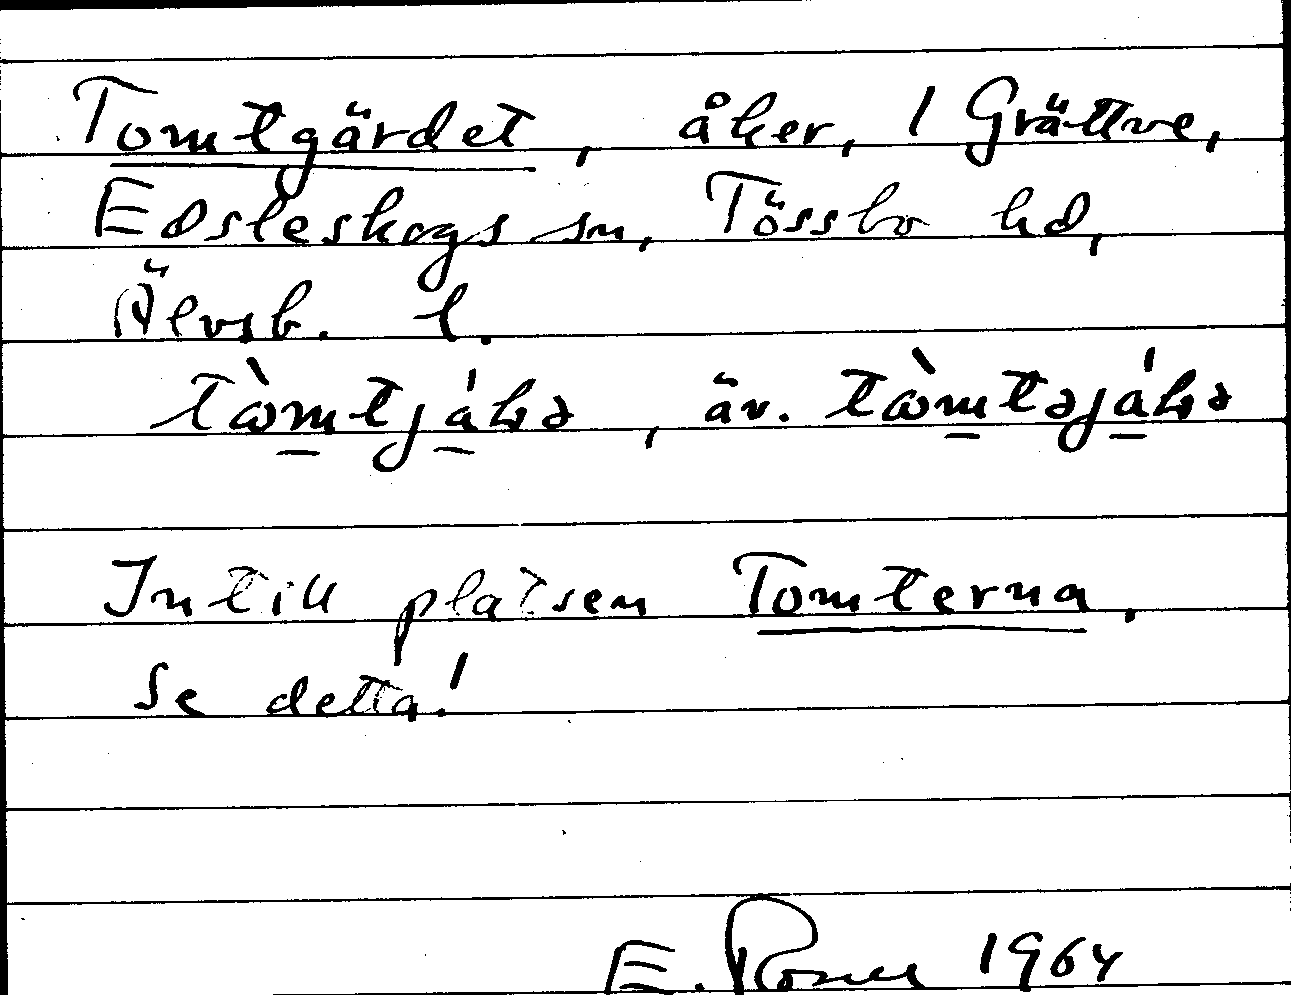 Tomtgärdet, åker, 1 Grättve,
Edsleskogs sn, Tössbo hd,
Älvsb. l.
, äv.
Intill platsen Tomterna.
Se detta!
E. 1964